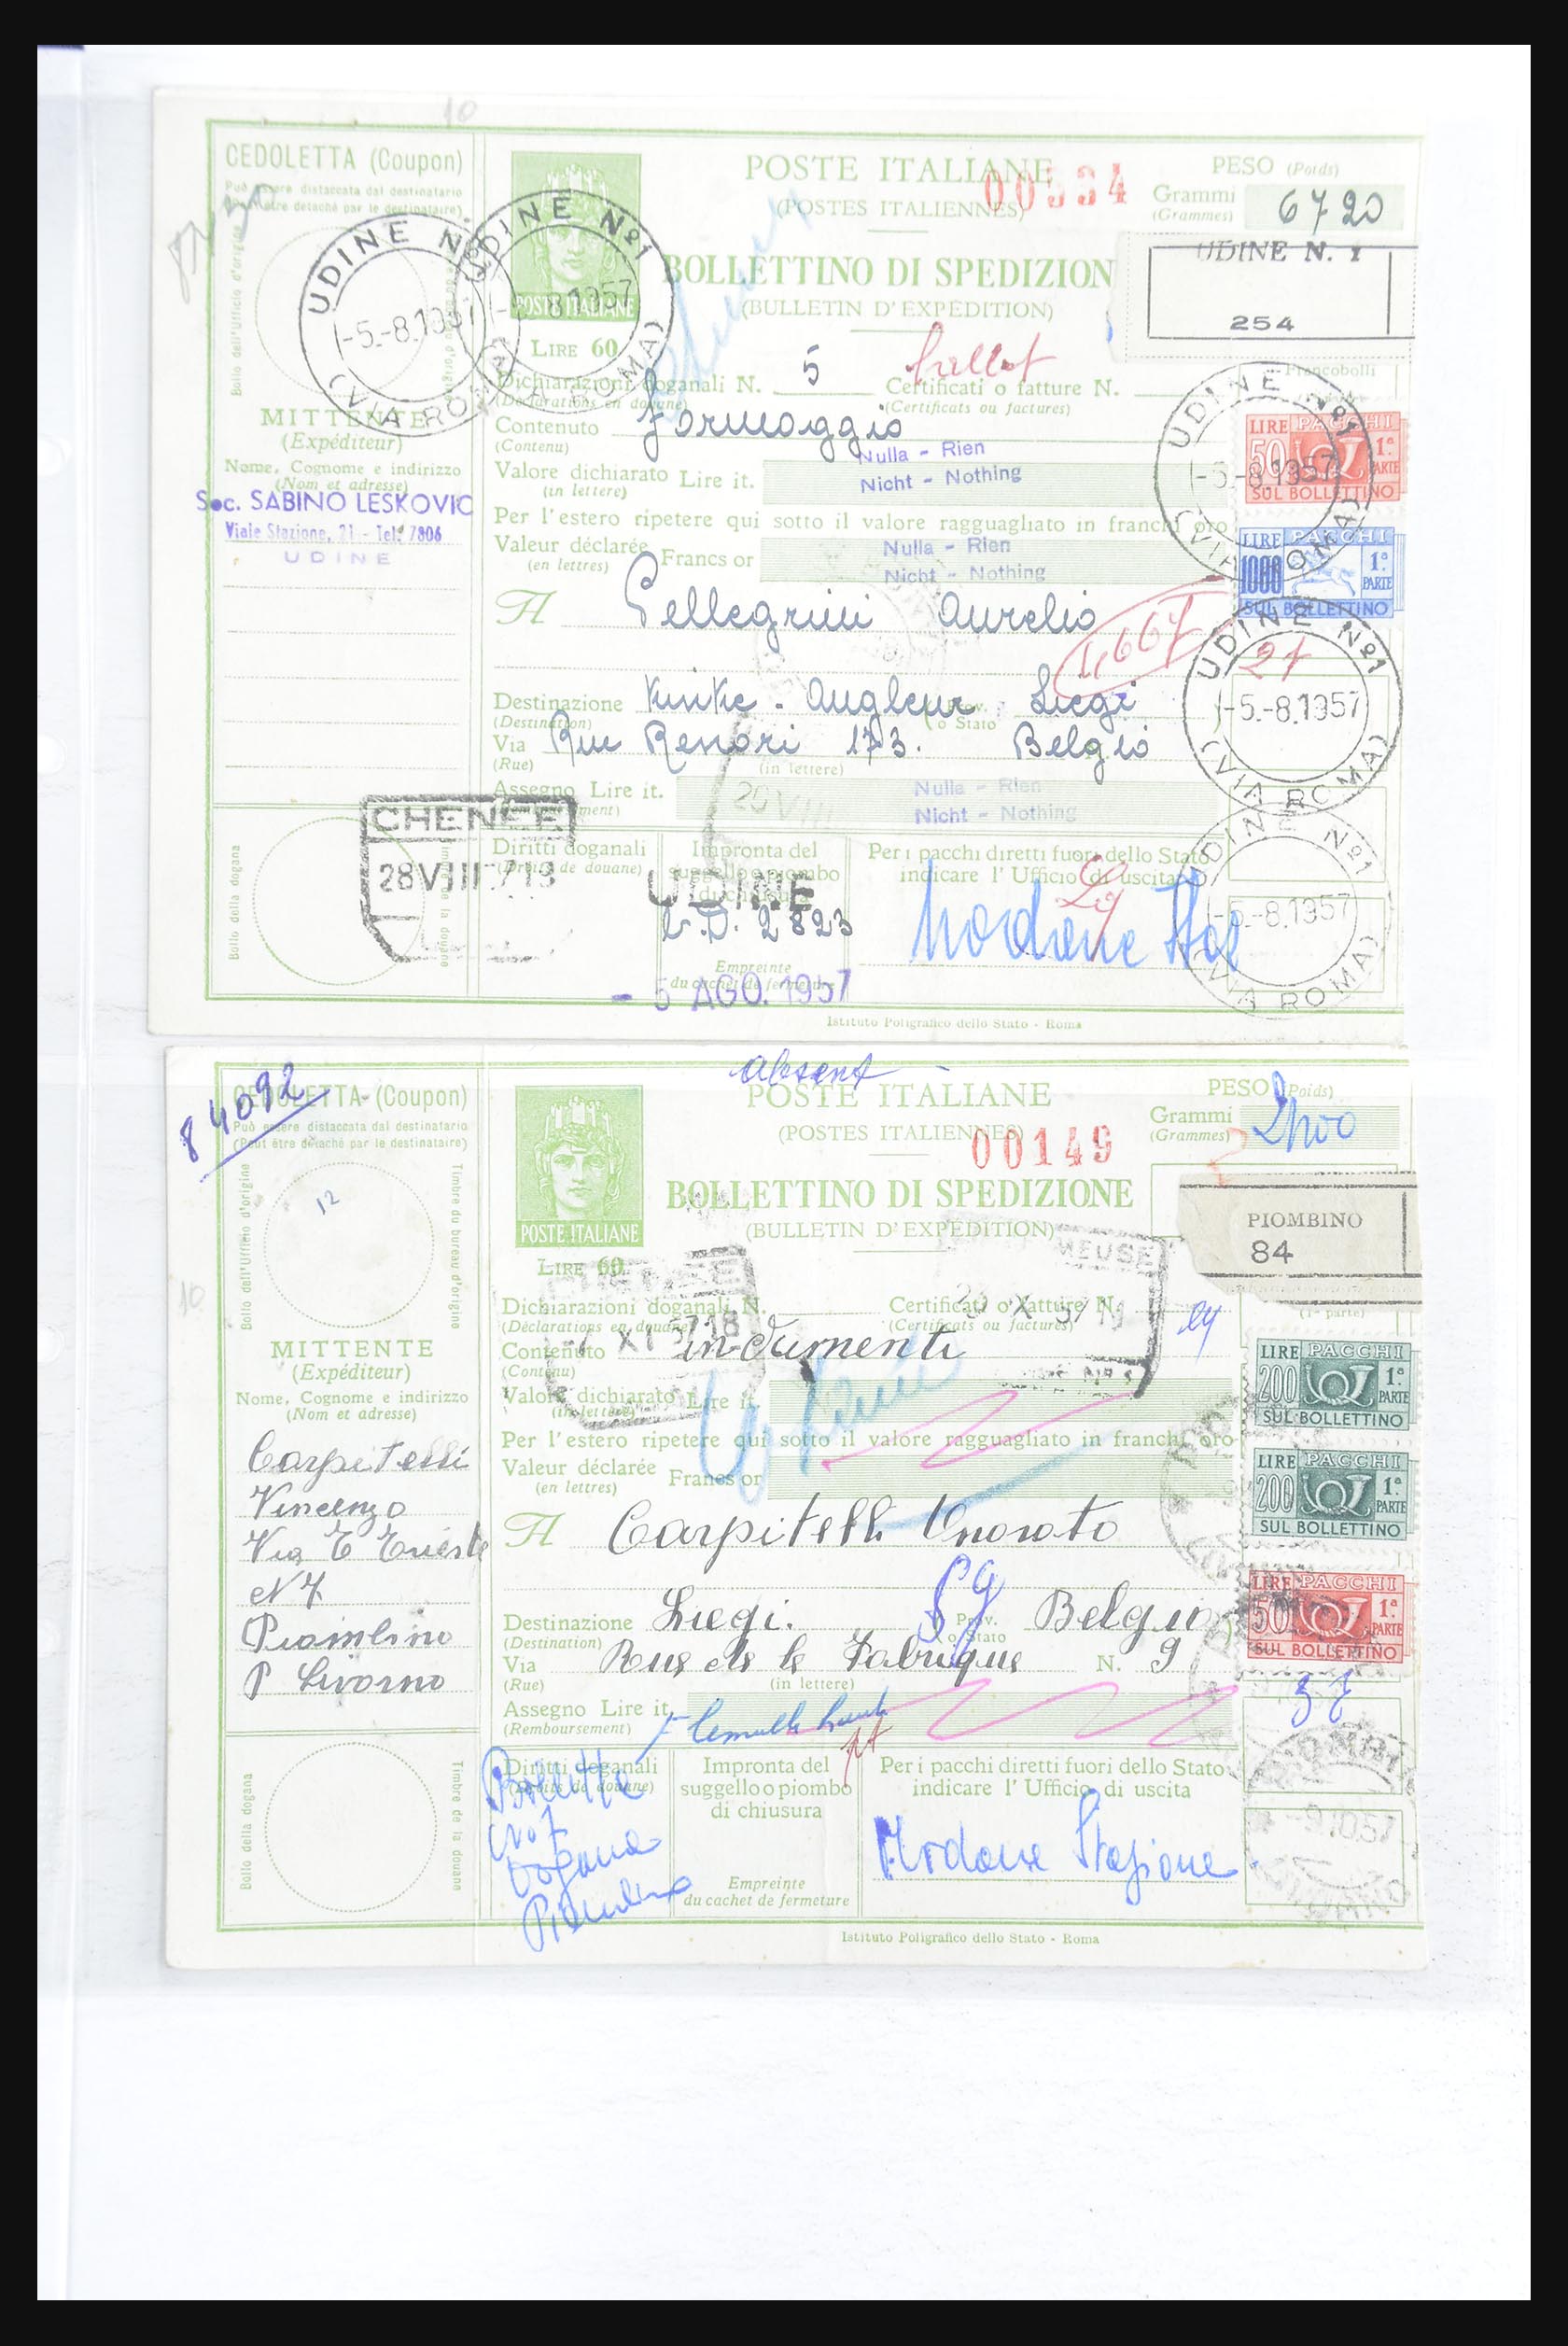 10
CEDOLETTA (Coupon)
Può essere distaccata dal destinatario
(Peut être detaché par le destinataire)
Bollo dell'Ufficio d'origine
POSTE ITALIANE
(POSTES ITALIENNES)
00534
BOLLETTINO DI SPEDIZION
(BULLETIN D'EXPÉDITION)
PESO (Poids)
Grammi
(Grammes)
6720
UDINE N. 1
254
UDINE Nº1
-5.-8.1957
(VIA ROMA)
UDINE Nº1
8.1957
POSTE ITALIANE
LIRE 60
Dichiarazioni doganali N. 5
(Déclarations en douane)
Certificati o fatture N.
(Certificats ou factures)
Francobolli
MITTENTE
(Expéditeur)
Nome, Cognome e indirizzo
(Nom et adresse)
Soc. SABINO LESKOVIC
Viale Stazione, 21 - Tel. 7806
UDINE
Contenuto Formaggio
(Contenu)
Valore dichiarato Lire it.
(in lettere)
Nulla - Rien
Nicht - Nothing
Per l'estero ripetere qui sotto il valore ragguagliato in franchi oro
Valeur déclarée Francs or
(en lettres)
Nulla - Rien
Nicht - Nothing
A Pellegrini Aurelio
1,667
Destinazione Kinke - Angleur Liegi
(Destination)
Prov. o Stato
Via Rue Renori 173. Belgio
(Rue)
(in lettere)
Assegno Lire it.
Nulla - Rien
Nicht - Nothing
20 VIII
LIRE PACCHI
50 1ª PARTE
SUL BOLLETTINO
LIRE PACCHI
1000 1ª PARTE
SUL BOLLETTINO
UDINE Nº1
-5.-8.1957
(VIA ROMA)
UDINE Nº1
27
-5.-8.1957
(VIA ROMA)
UDINE Nº1
-5.-8.1957
(VIA ROMA)
CHENEE
28 VIII
Bollo della dogana
Timbre de la douane
Diritti doganali
(Droits de douane)
Impronta del
suggello o piombo
di chiusura
UDINE
2823
Empreinte
du cachet de fermeture
- 5 AGO. 1957
Per i pacchi diretti fuori dello Stato
indicare l'Ufficio di uscita
Lg
Modane
Istituto Poligrafico dello Stato - Roma
84092
absent
CEDOLETTA (Coupon)
Può essere distaccata dal destinatario
(Peut être detaché par le destinataire)
Bollo dell'Ufficio d'origine
Timbre du bureau d'origine
12
10
POSTE ITALIANE
(POSTES ITALIENNES)
00149
BOLLETTINO DI SPEDIZIONE
(BULLETIN D'EXPÉDITION)
PESO (Poids)
Grammi
(Grammes)
PIOMBINO
84
POSTE ITALIANE
LIRE 60
MEUSE
Dichiarazioni doganali N.
(Déclarations en douane)
Certificati o fatture N.
(Certificats ou factures)
(1ª parte)
MITTENTE
(Expéditeur)
Nome, Cognome e indirizzo
(Nom et adresse)
Carpitelli
Vincenzo
Via E Trieste
N 7
Piombino
P Livorno
Contenuto indumenti
(Contenu)
Valore dichiarato Lire it.
(in lettere)
Per l'estero ripetere qui sotto il valore ragguagliato in franchi oro
Valeur déclarée Francs or
(en lettres)
A Carpitelli Onorato
Destinazione Liegi. Lg Belgio
(Destination)
Prov. o Stato
Via Rue de la Fabrique N. 9
(Rue)
(in lettere)
Assegno Lire it.
(Remboursement)
LIRE PACCHI
200 1ª PARTE
SUL BOLLETTINO
LIRE PACCHI
200 1ª PARTE
SUL BOLLETTINO
LIRE PACCHI
50 1ª PARTE
SUL BOLLETTINO
Bollo della dogana
Timbre de la douane
Diritti doganali
(Droits de douane)
Bolletta
Nº 7
Dogana
Piombino
Impronta del
suggello o piombo
di chiusura
Empreinte
du cachet de fermeture
Per i pacchi diretti fuori dello Stato
indicare l'Ufficio di uscita
Modane Stazione
-9.10.57
Istituto Poligrafico dello Stato - Roma